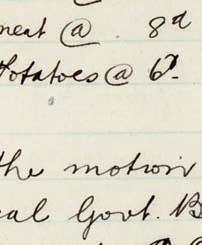 meat @ . 8d
Potatoes @ 6d.
the motion
cal Govt. B